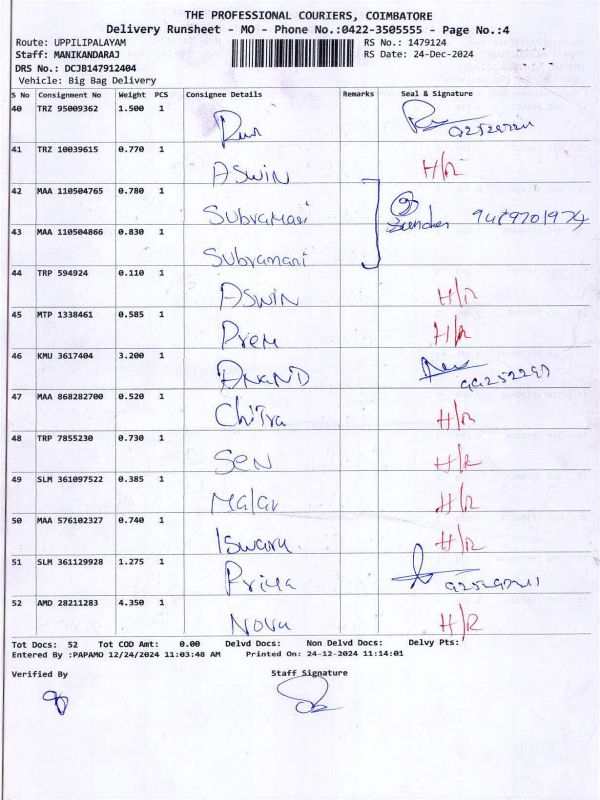 THE PROFESSIONAL COURIERS, COIMBATORE
Delivery Runsheet - MO - Phone No.:0422-3505555 - Page No.:4
Route: UPPILIPALAYAM RS No.: 1479124
Staff: MANIKANDARAJ RS Date: 24-Dec-2024
DRS No.: DCJB147912404
Vehicle: Big Bag Delivery
S No Consignment No Weight PCS Consignee Details Remarks Seal & Signature
40 TRZ 95009362 1.500 1
41 TRZ 10039615 0.770 1 ASWIN H/R
42 MAA 110504765 0.780 1 Subramani
43 MAA 110504866 0.830 1 Subramani
44 TRP 594924 0.110 1 ASWIN H/R
45 MTP 1338461 0.585 1 Prem H/R
46 KMU 3617404 3.200 1 ANAND
47 MAA 868282700 0.520 1 Chitra H/R
48 TRP 7855230 0.730 1 SEN H/R
49 SLM 361097522 0.385 1 Malar H/R
50 MAA 576102327 0.740 1 Iswary H/R
51 SLM 361129928 1.275 1 Priya
52 AMD 28211283 4.350 1 Nova H/R
Tot Docs: 52 Tot COD Amt: 0.00 Delvd Docs: Non Delvd Docs: Delvy Pts:
Entered By :PAPAMO 12/24/2024 11:03:48 AM Printed On: 24-12-2024 11:14:01
Verified By Staff Signature